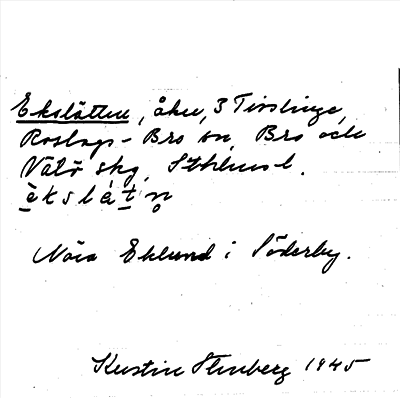 Ekslätten, åker, 3 Tivslinge,
Roslags-Bro sn, Bro och
Vätö skg, Sthlms l.
èkslát n̥
Nära Eklund i Söderby.
Kerstin Stenberg 1945